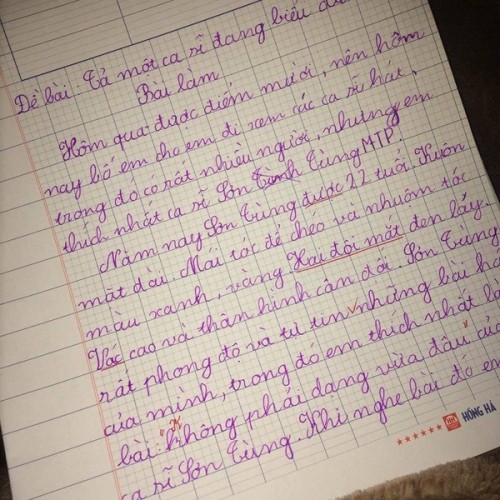 Đề bài: Tả một ca sĩ đang biểu
Bài làm
Hôm qua được điểm mười, nên hôm
nay bố em cho em đi xem các ca sĩ hát,
trong đó có rất nhiều người, nhưng em
thích nhất ca sĩ Sơn Tùng MTP
Năm nay Sơn Tùng được 22 tuổi. Khuôn
mặt dài. Mái tóc để chéo và nhuộm tóc
màu xanh, vàng. Hai đôi mắt đen láy.
Vác cao và thân hình cân đối. Sơn Tùng
rất phong độ và tự tin những bài há
của mình, trong đó em thích nhất là
bài: "Không phải dạng vừa đâu" củ
ca sĩ Sơn Tùng. Khi nghe bài đó em
HH HỒNG HÀ